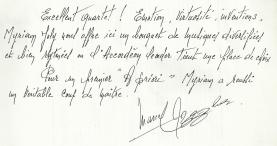 Excellent quartet ! Emotion, virtuosité, inventions.
Myriam Joly nous offre ici un bouquet de musiques diversifiées
et bien rythmées où l'Accordéon leader tient une place de choix
Pour un premier "A priori" Myriam a réussi
un véritable coup de maître.
Marcel